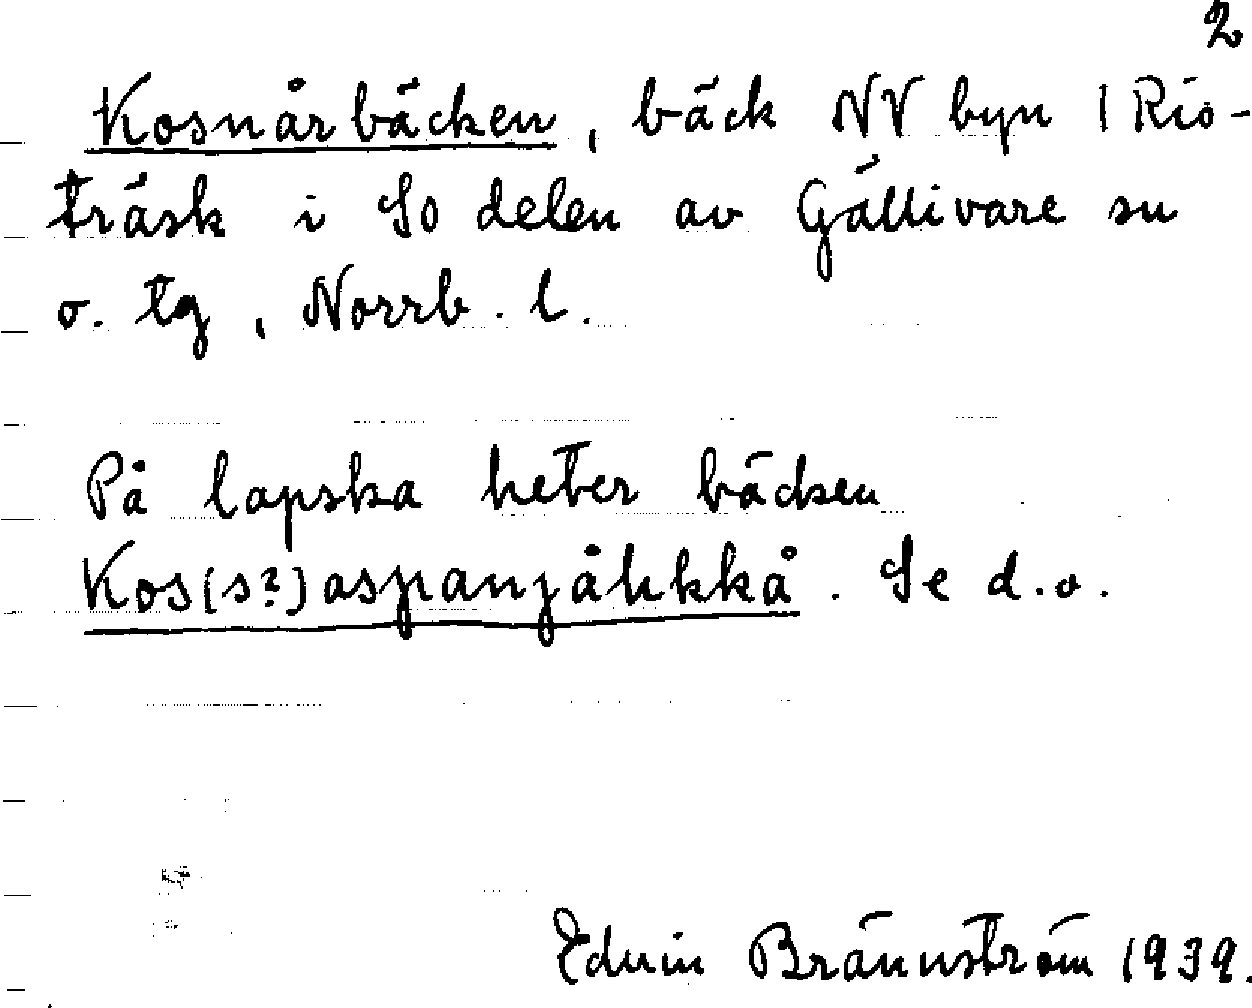 2
Kosnårbäcken, bäck NV byn 1 Rio-
träsk i So delen av Gällivare sn
o. tg, Norrb. l.
På lapska heter bäcken
Kos(s?)aspanjåhkkå. Se d.o.
Edvin Brännström 1939.